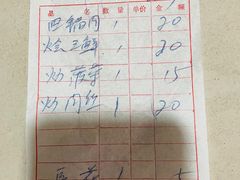 品 名 数量 单价 金额
回锅肉 1 20
烩三鲜 1 20
炒菠菜 1 15
炒肉丝 1 20
1 5